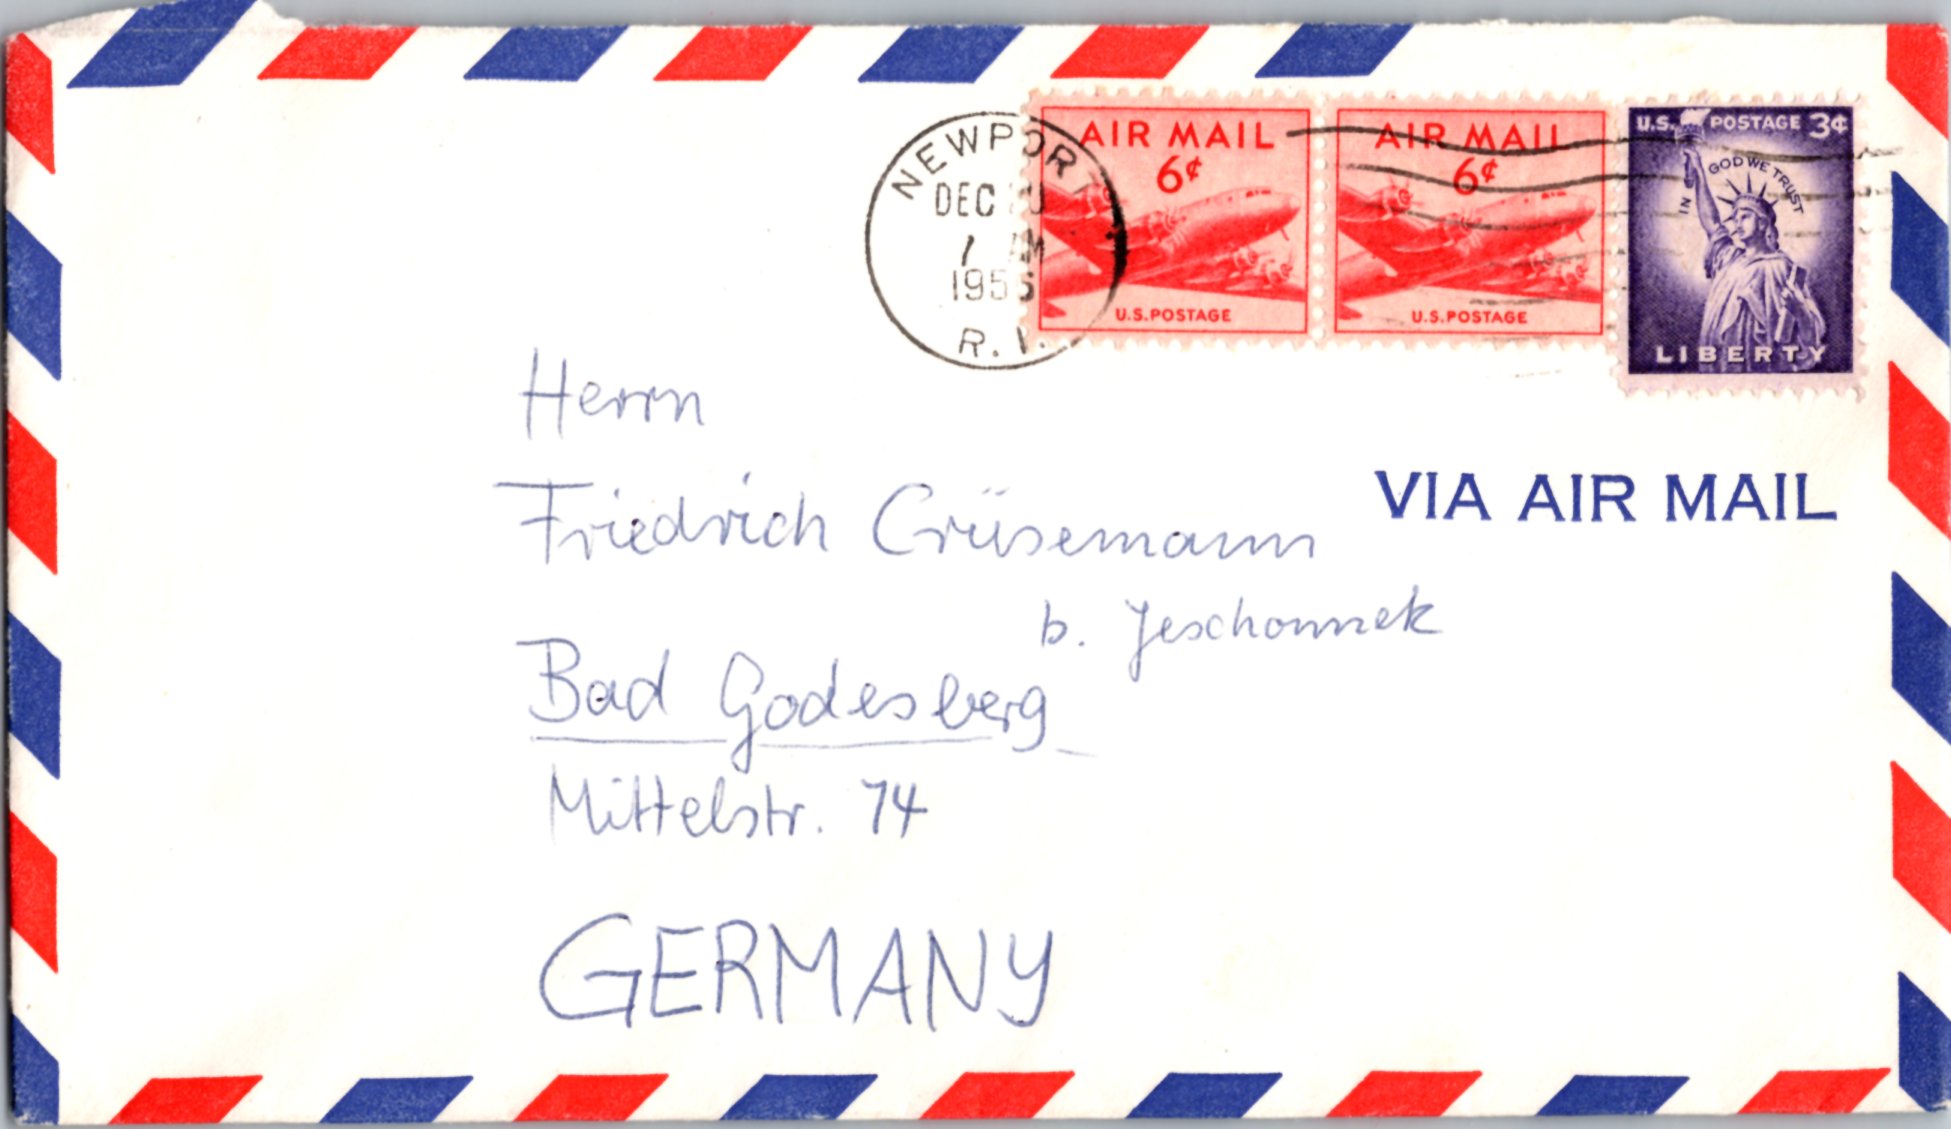 NEWPORT
DEC
1 AM
195
R. I.
AIR MAIL
6¢
U.S.POSTAGE
AIR MAIL
6¢
U.S.POSTAGE
U.S. POSTAGE 3¢
IN GOD WE TRUST
LIBERTY
VIA AIR MAIL
Herrn
Friedrich Crüsemann
b. Jeschonnek
Bad Godesberg
Mittelstr. 74
GERMANY